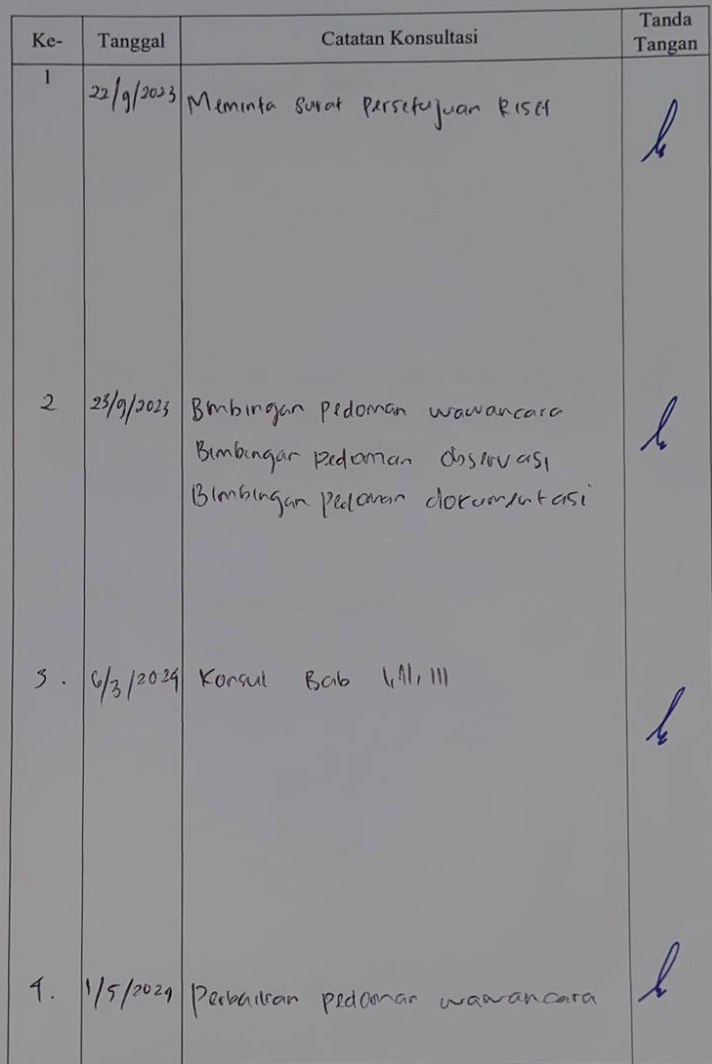 Ke- Tanggal Catatan Konsultasi Tanda Tangan
1 22/9/2023 Meminta surat persetujuan Riset
2 23/9/2023 Bimbingan pedoman wawancara
Bimbingan pedoman observasi
Bimbingan pedoman dokumentasi
3. 6/3/2024 Konsul Bab I, II, III
4. 1/5/2024 Perbaikan pedoman wawancara